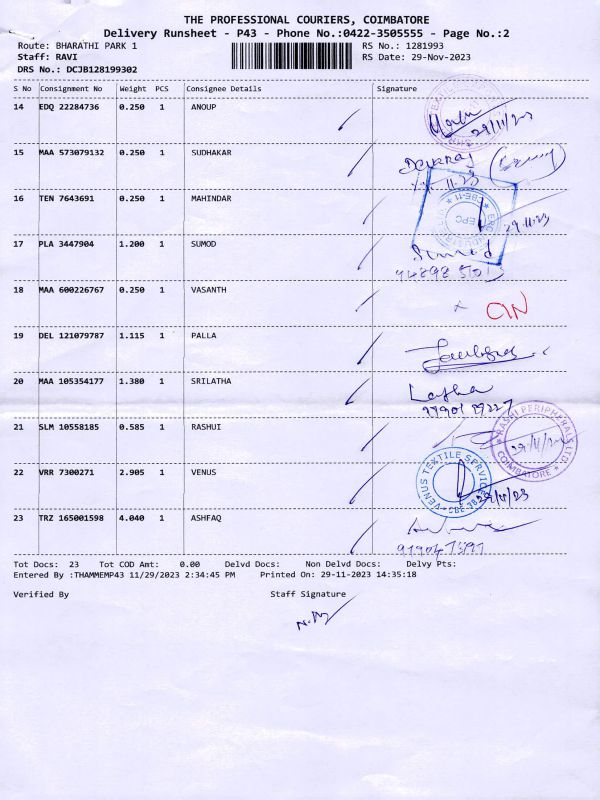 THE PROFESSIONAL COURIERS, COIMBATORE
Delivery Runsheet - P43 - Phone No.:0422-3505555 - Page No.:2
Route: BHARATHI PARK 1 RS No.: 1281993
Staff: RAVI RS Date: 29-Nov-2023
DRS No.: DCJB128199302
S No Consignment No Weight PCS Consignee Details Signature
14 EDQ 22284736 0.250 1 ANOUP
29/11/23
15 MAA 573079132 0.250 1 SUDHAKAR
Devaraj
16 TEN 7643691 0.250 1 MAHINDAR
29.11.23
17 PLA 3447904 1.200 1 SUMOD
Sumod
18 MAA 600226767 0.250 1 VASANTH
19 DEL 121079787 1.115 1 PALLA
20 MAA 105354177 1.380 1 SRILATHA
Latha
21 SLM 10558185 0.585 1 RASHUI
RASHI PERIPHERALS LTD.
COIMBATORE
22 VRR 7300271 2.905 1 VENUS
VENUS TEXTILE SERVICE
23 TRZ 165001598 4.040 1 ASHFAQ
Tot Docs: 23 Tot COD Amt: 0.00 Delvd Docs: Non Delvd Docs: Delvy Pts:
Entered By :THAMMEMP43 11/29/2023 2:34:45 PM Printed On: 29-11-2023 14:35:18
Verified By Staff Signature